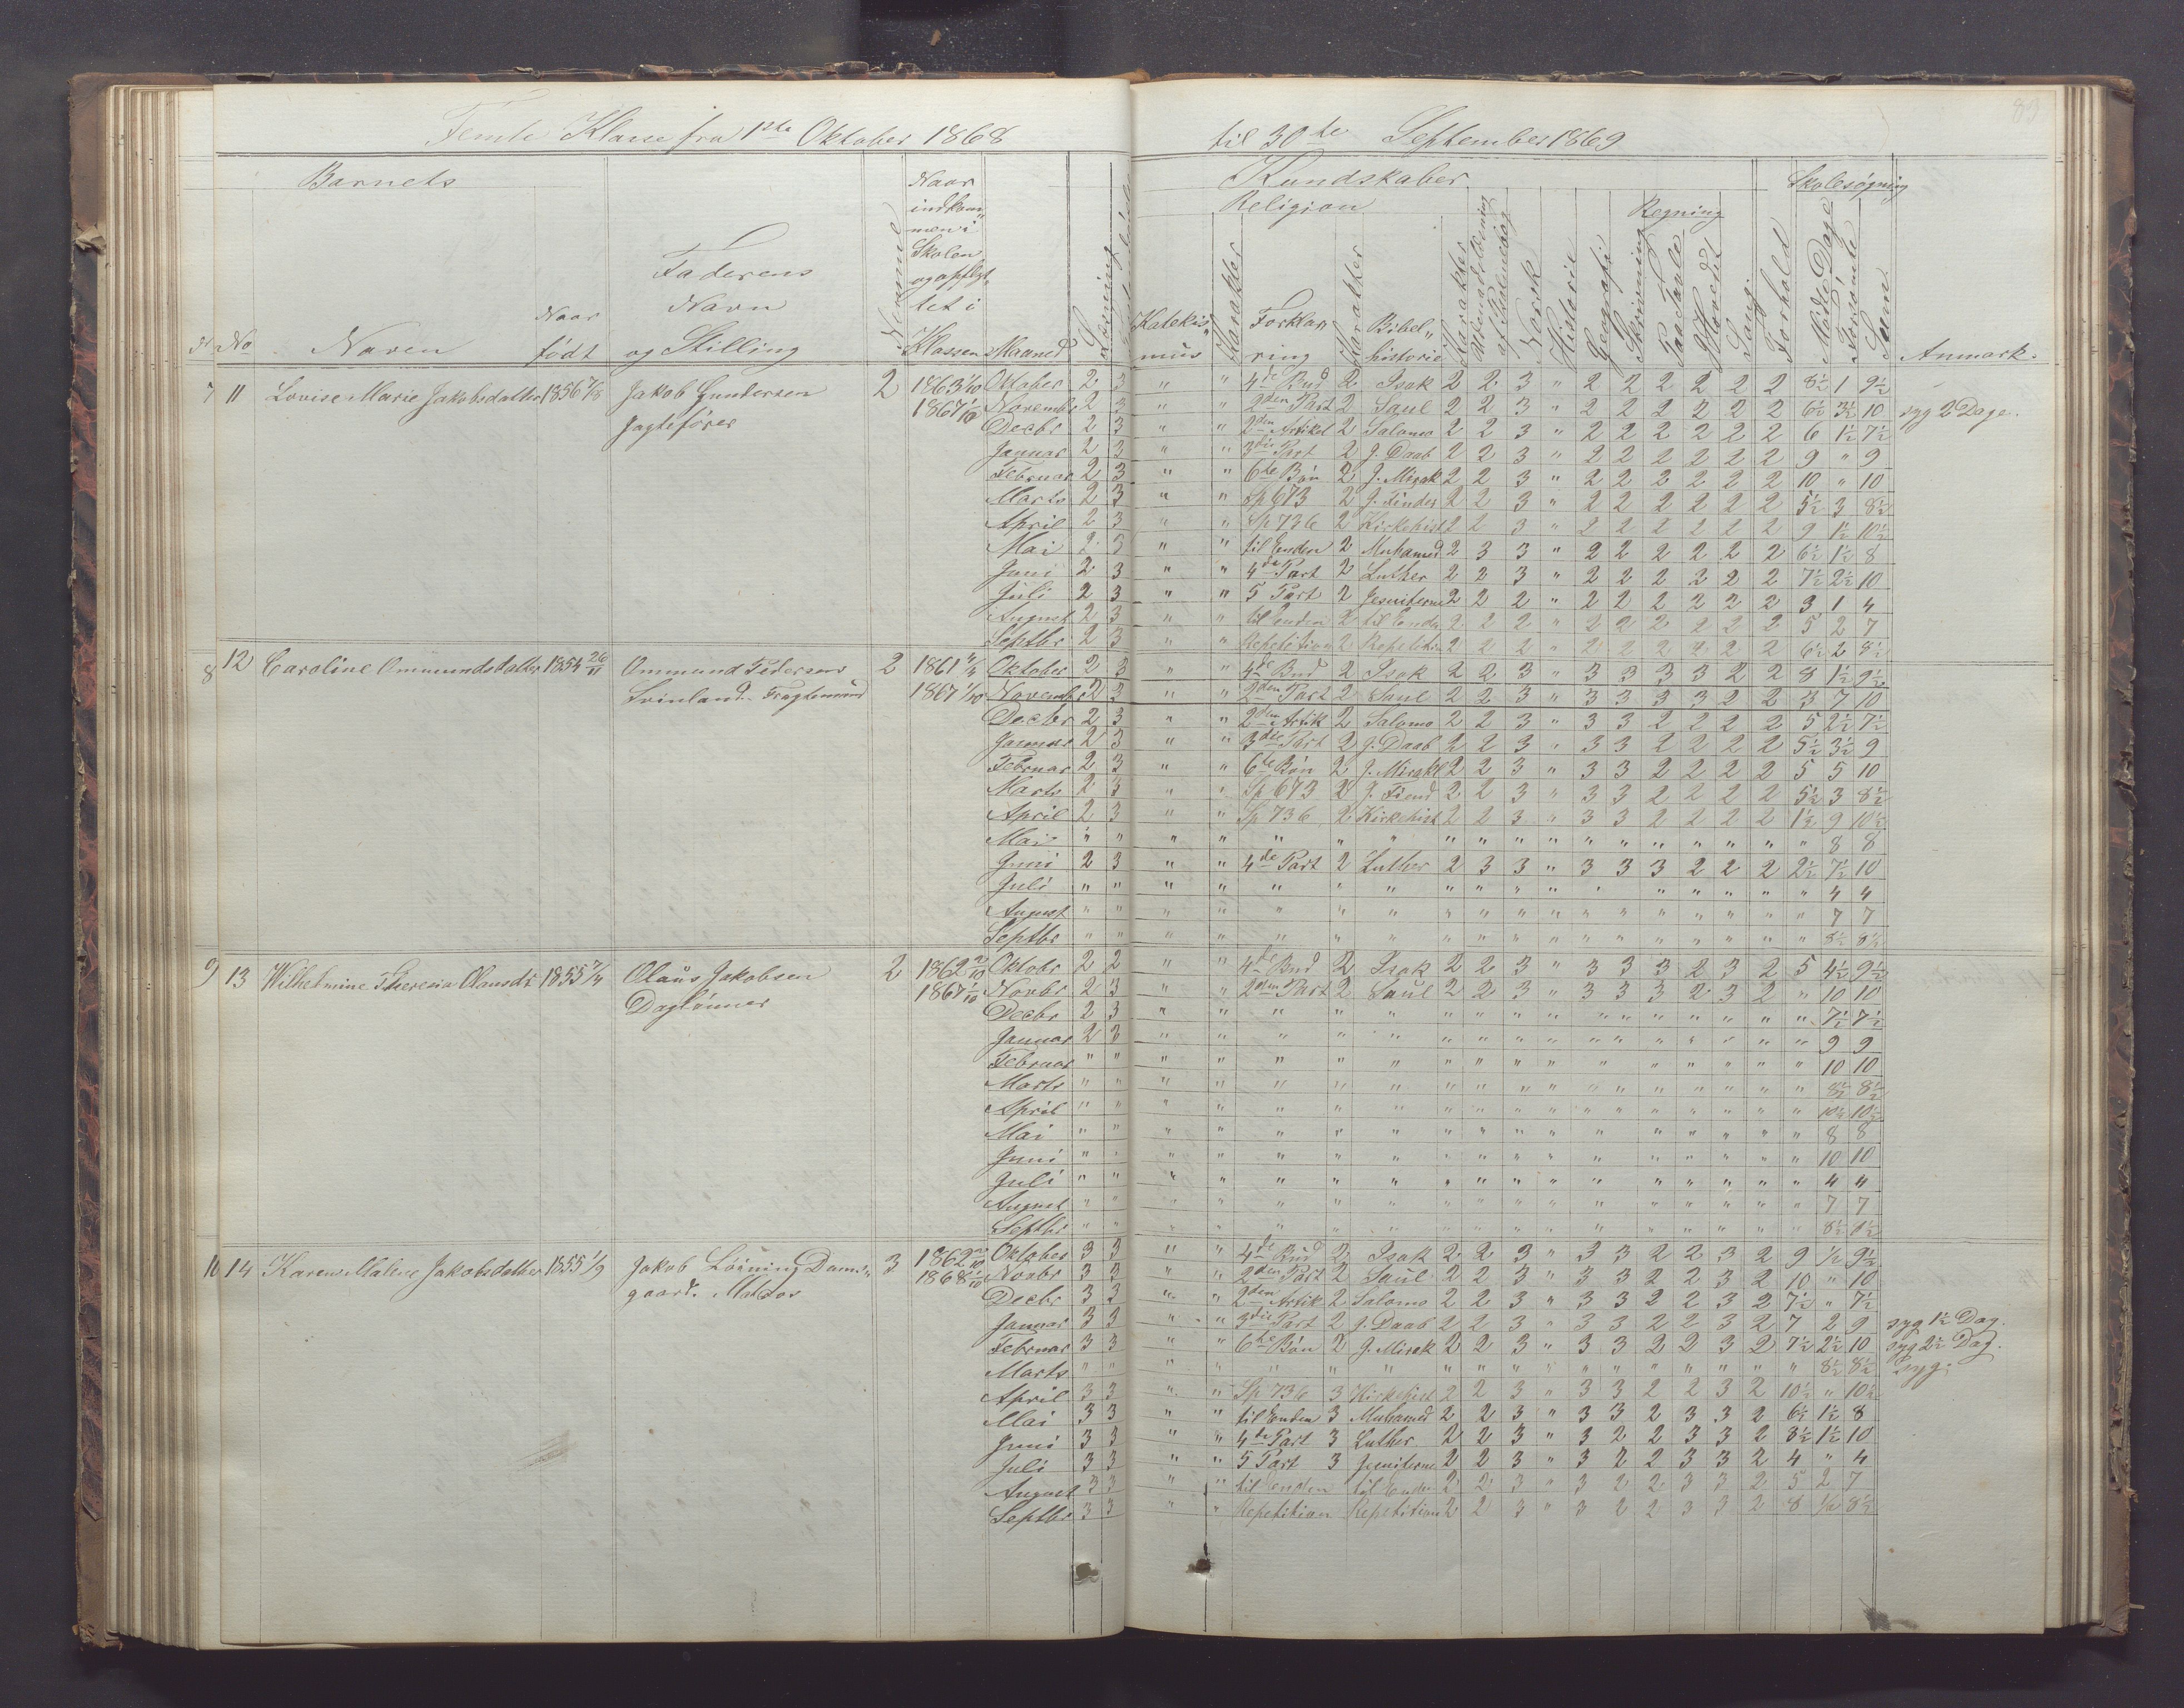 Femte Klasse fra 1ste Oktober 1868 til 30te September 1869
83
Barnets
Naar indkommen i Skolen og opflyttet i Klassen
Kundskaber
Skolesøgning
Religion
Regning
No Navn Naar født Faderens Navn og Stilling Nemme Maaned Læsning Katekismus Karakter Forklaring Karakter Bibelhistorie Karakter Udenadslæsning af Psalmebog Norsk Historie Geografi Skrivning Paa Tavle I Hovedet Sang Forhold Mødte Dage Forsømte Sum Anmærk.
7 11 Lovise Marie Jakobsdatter 1856 7/8 Jakob Gundersen 2 1863 1/10 Oktober 2 3 " " 4de Bud 2 Isak 2 2 3 " 2 2 2 2 2 2 8½ 1 9½
Jagtefører 1867 1/10 Novembr 2 3 " " 2den Part 2 Saul 2 2 3 " 2 2 2 2 2 2 6½ 3½ 10 syg 2 Dage.
Decbr 2 3 " " 2den Artikel 2 Salomo 2 2 3 " 2 2 2 2 2 2 6 1½ 7½
Januar 2 3 " " 3die Part 2 J. Daab 2 2 3 " 2 2 2 2 2 2 9 " 9
Februar 2 3 " " 6te Bøn 2 J. Mirak 2 2 3 " 2 2 2 2 2 2 10 " 10
Marts 2 3 " " Sp 673 2 J. Finder 2 2 3 " 2 2 2 2 2 2 5½ 3 8½
April 2 3 " " Sp 736 2 Kirkehist 2 2 3 " 2 2 2 2 2 2 9 1½ 10½
Mai 2 3 " " til Enden 2 Muhamed 2 3 3 " 2 2 2 2 2 2 6½ 1½ 8
Juni 2 3 " " 4de Part 2 Luther 2 2 3 " 2 2 2 2 2 2 7½ 2½ 10
Juli 2 3 " " 5 Part 2 Jesuiterne 2 2 2 " 2 2 2 2 2 2 3 1 4
August 2 3 " " til Enden 2 til Enden 2 2 2 " 2 2 2 2 2 2 5 2 7
Septbr 2 3 " " Repetition 2 Repetition 2 2 2 " 2 2 2 2 2 2 6½ 2 8½
8 12 Caroline Ommundsdatter 1854 26/11 Ommund Pedersen 2 1861 Oktober 2 3 " " 4de Bud 2 Isak 2 2 3 " 3 3 3 3 2 2 8 1½ 9½
Fragtemand 1867 1/10 Novembr 2 3 " " 2den Part 2 Saul 2 2 3 " 3 3 3 3 2 2 3 7 10
Decbr 2 3 " " 2den Artik 2 Salomo 2 2 3 " 3 3 2 2 2 2 5 2½ 7½
Januar 2 3 " " 3die Part 2 J. Daab 2 2 3 " 3 3 2 2 2 2 5½ 3½ 9
Februar 2 3 " " 6te Bøn 2 J. Mirakl 2 2 3 " 3 3 2 2 2 2 5 5 10
Marts 2 3 " " Sp 673 2 J. Fiend 2 2 3 " 3 3 2 2 2 2 5½ 3 8½
April 2 3 " " Sp 736 2 Kirkehist 2 2 3 " 3 3 2 2 2 2 1½ 9 10½
Mai " " " " " " " " " " " " " " " " " " " 8 8
Juni 2 3 " " 4de Part 2 Luther 2 3 3 " 3 3 3 2 2 2 2½ 7½ 10
Juli " " " " " " " " " " " " " " " " " " 4 4
August " " " " " " " " " " " " " " " " " " " 7 7
Septbr " " " " " " " " " " " " " " " " " " " 8½ 8½
9 13 Wilhelmine Theresia Olausdt 1855 7/4 Olaus Jakobsen 2 1862 Oktobr 2 2 " " 4de Bud 2 Isak 2 2 3 " 3 3 3 2 3 2 5 4½ 9½
Daglønner 1867 1/10 Novbr 2 3 " " 2den Part 2 Saul 2 2 3 " 3 3 3 2 3 2 " 10 10
Decbr 2 3 " " " " " " " " " " " " " " " " " 7½ 7½
Januar 2 3 " " " " " " " " " " " " " " " " 9 9
Februar " " " " " " " " " " " " " " " " " " 10 10
Marts " " " " " " " " " " " " " " " " " " " 8½ 8½
April " " " " " " " " " " " " " " " " " " " 10½ 10½
Mai " " " " " " " " " " " " " " " " " " 8 8
Juni " " " " " " " " " " " " " " " " " " 10 10
Juli " " " " " " " " " " " " " " " " " " 4 4
August " " " " " " " " " " " " " " " " " " 7 7
Septbr " " " " " " " " " " " " " " " " " " 8½ 8½
10 14 Karen Malene Jakobsdatter 1855 1/9 Jakob Løining Dams- 3 1862 Oktober 3 3 " " 4de Bud 2 Isak 2 2 3 " 3 3 2 2 3 2 9 ½ 9½
gaard. Matros 1868 1/10 Novbr 3 3 " " 2den Part 2 Saul 2 2 3 " 3 3 2 2 3 2 10 " 10
Decbr 3 3 " " 2den Artik 2 Salomo 2 2 3 " 3 3 2 2 3 2 7½ " 7½
Januar 3 3 " " 3die Part 2 J. Daab 2 2 3 " 3 3 2 2 3 2 7 2 9 syg 1½ Dag.
Februar 3 3 " " 6te Bøn 2 J. Mirak 2 2 3 " 3 3 2 2 3 2 7½ 2½ 10 syg 2½ Dag.
Marts " " " " " " " " " " " " " " " " " " " 8½ 8½ syg.
April 3 3 " " Sp 736 3 Kirkehist 2 2 3 " 3 3 2 2 3 2 10½ " 10½
Mai 3 3 " " til Enden 3 Muhamed 2 2 3 " 3 3 2 3 3 2 6½ 1½ 8
Juni 3 3 " " 4de Part 3 Luther 2 2 3 " 3 2 2 3 3 2 8½ 1½ 10
Juli 3 3 " " 5 Part 3 Jesuiterne 2 2 3 " 3 2 2 3 3 2 4 " 4
August 3 3 " " til Enden til Enden 2 2 3 " 3 2 2 3 3 2 5 2 7
Septbr 3 3 " " Repetition Repetition 2 2 3 " 3 2 2 3 3 2 8 ½ 8½